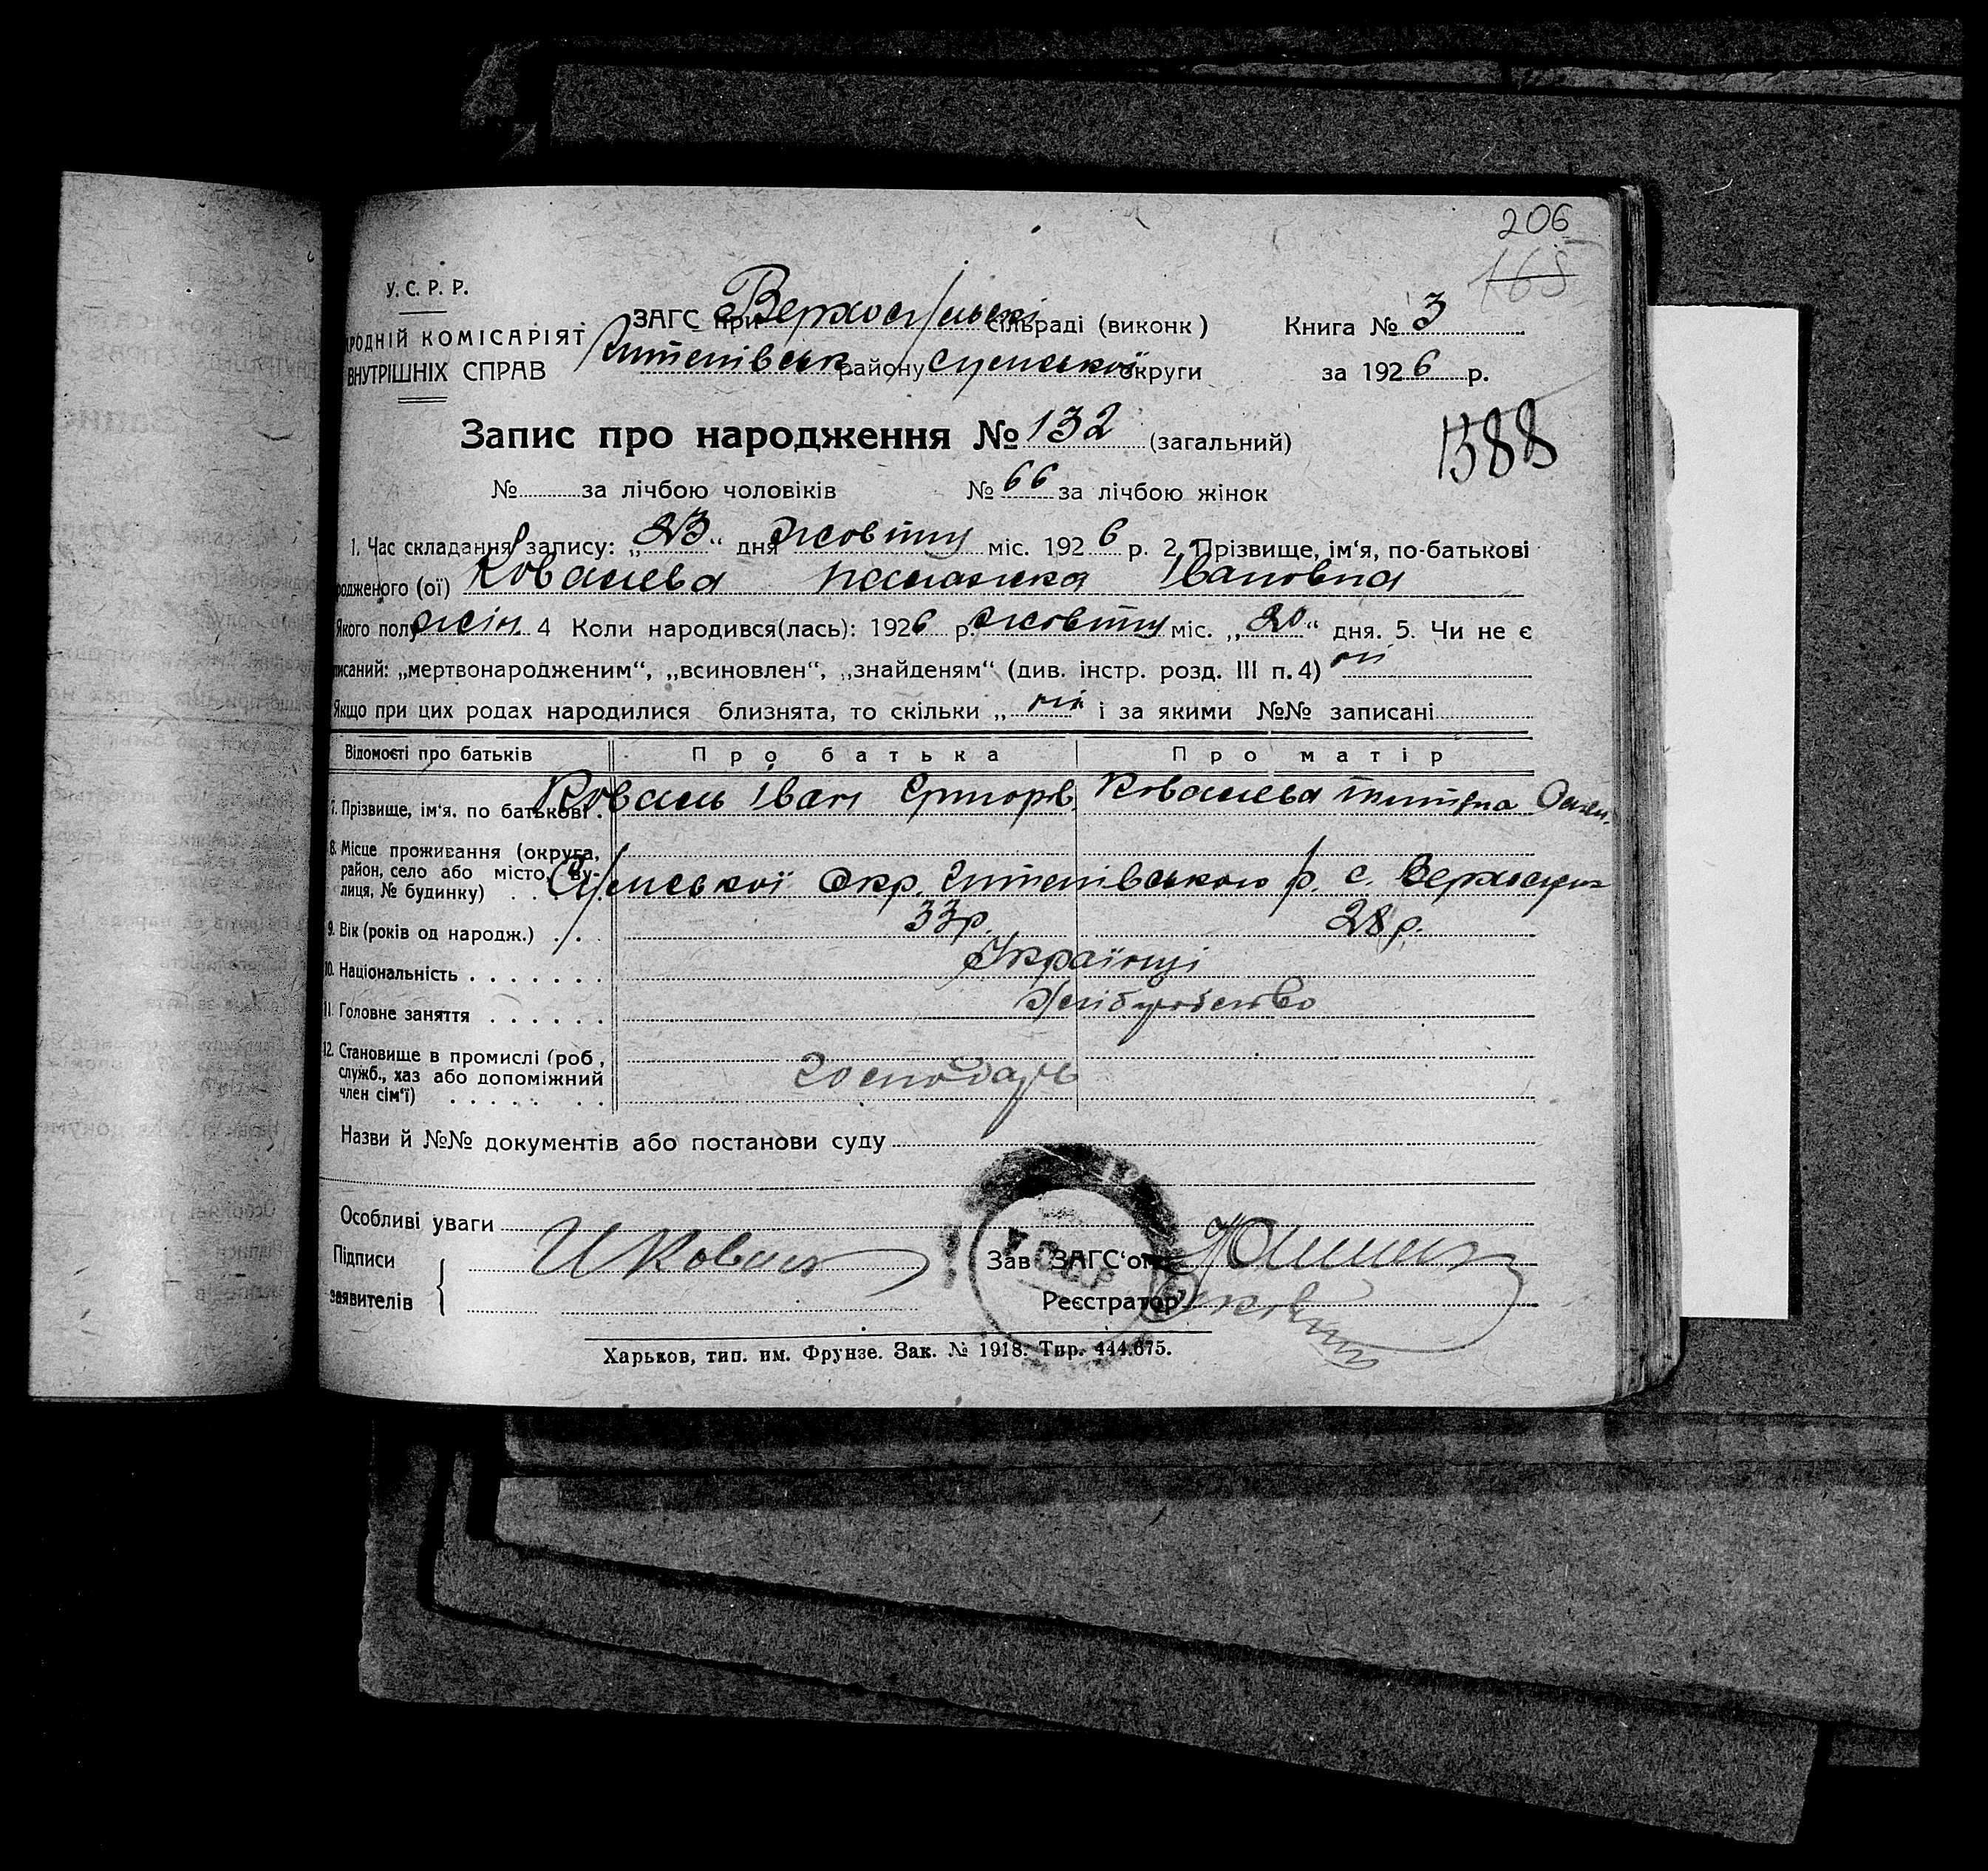 206
165
У. С. Р. Р.
ЗАГС при Верхосульські сільраді (виконк) Книга № 3
РОДНІЙ КОМІСАРІЯТ
ВНУТРІШНІХ СПРАВ
Штепівськ району Сумської округи за 1926 р.
Запис про народження № 132 (загальний)
1388
№ за лічбою чоловіків № 66 за лічбою жінок
1. Час складання запису: „23“ дня жовтня міс. 1926 р. 2. Прізвище, ім‘я, по-батькові
родженого (ої) Ковалева Івановна
Якого полу жін. 4 Коли народився(лась): 1926 р. жовтня міс. „20“ дня. 5. Чи не є
писаний: „мертвонародженим“, „всиновлен“, „знайденям“ (див. інстр. розд. III п. 4) ні
Якщо при цих родах народилися близнята, то скільки „ ні і за якими №№ записані
Відомості про батьків Про батька Про матір
7. Прізвище, ім‘я. по батькові. Коваль Іван Ковалева
8. Місце проживання (округа,
район, село або місто, ву-
лиця, № будинку) Сумської окр. Штепівського р. с. Верхосули
9. Вік (років од народж.) 33р. 28р.
10. Національність Українці
11. Головне заняття Хліборобство
12. Становище в промислі (роб,
служб., хаз або допоміжний
член сім‘ї) господарь
Назви й №№ документів або постанови суду
Особливі уваги
Підписи
заявителів И Коваль
Зав ЗАГС‘ом
Реєстратор
Харьков, тип. им. Фрунзе. Зак. № 1918. Тир. 444.675.